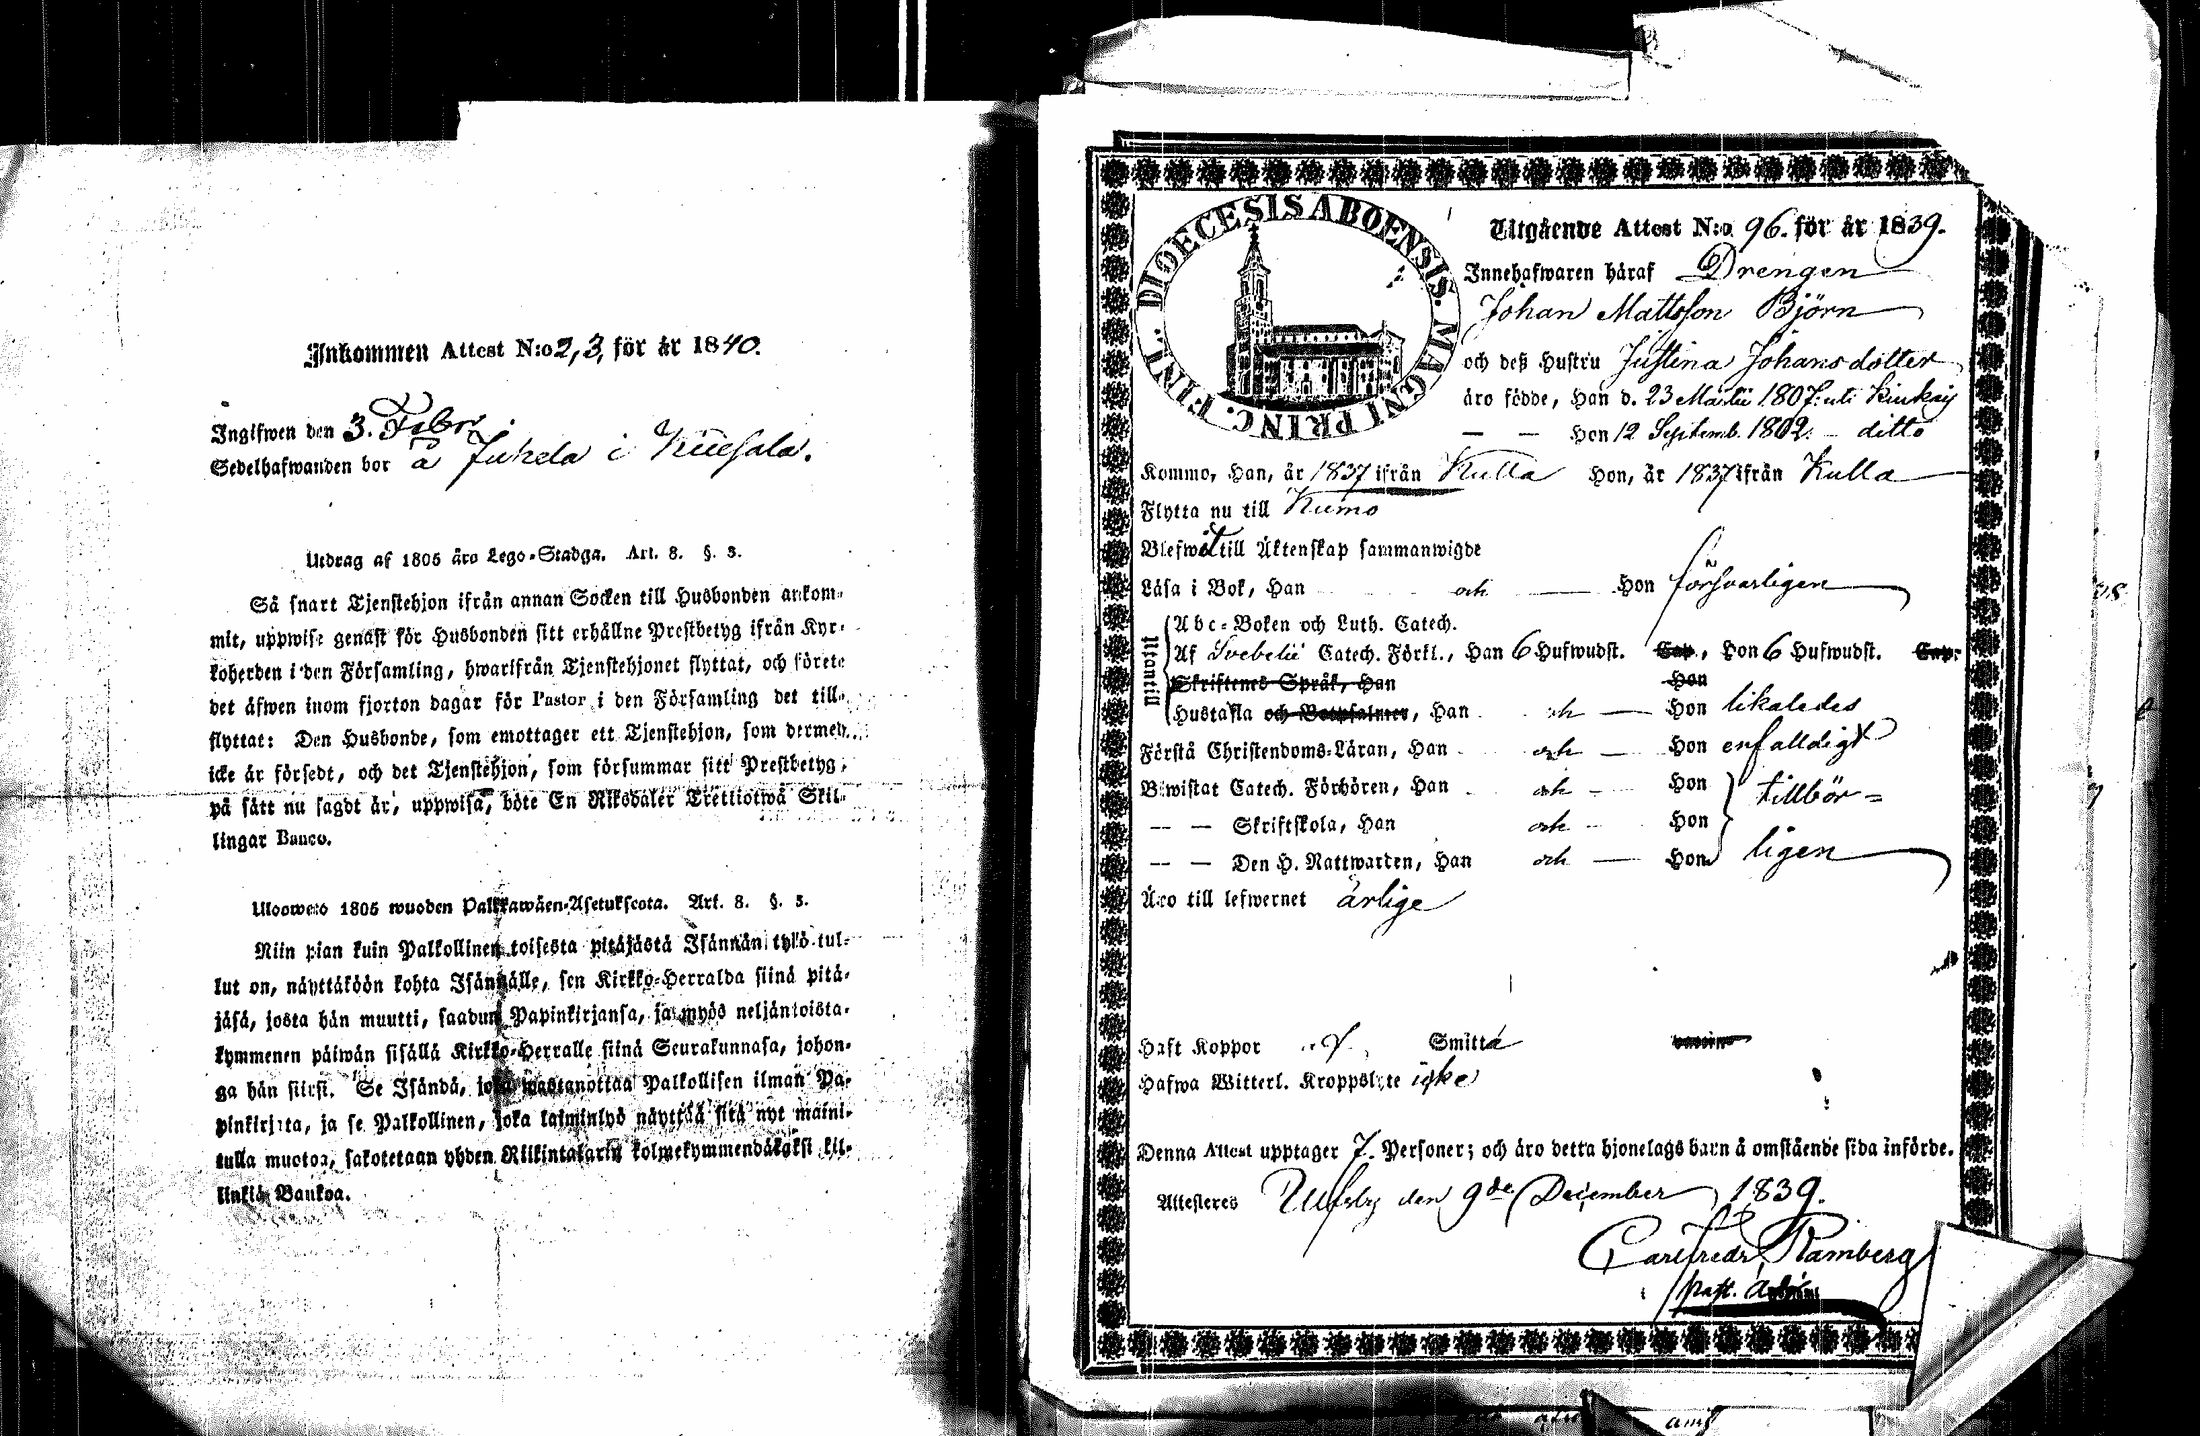 Inkommen Attest N:o 2,3, för år 1840.
Ingifwen den 3. Febr.
Sedelhafwanden bor å Jukela i Kuesala.
Utdrag af 1805 års Lego-Stadga. Art. 8. §. 3.
Så snart Tjenstehjon ifrån annan Socken till Husbonden ankom-
mit, uppwise genast för Husbonden sitt erhållne Prestbetyg ifrån Kyr-
koherden i den Församling, hwarifrån Tjenstehjonet flyttat, och förete
det äfwen inom fjorton dagar för Pastor i den Församling det till-
flyttat: Den Husbonde, som emottager ett Tjenstehjon, som dermed
icke är försedt, och det Tjenstehjon, som försummar sitt Prestbetyg,
på sätt nu sagdt är, uppwisa, böte En Riksdaler Trettiotwå Skil-
lingar Banco.
1805 wuoden Palkkawäen-Asetuksesta. Art. 8. §. 3.
Niin pian kuin Palkollinen toisesta pitäjästä Isännän tykö tul-
lut on, näyttäköön kohta Isännälle, sen Kirkko-Herralda siinä pitä-
jäsä, josta hän muutti, saadun Papinkirjansa, ja myös neljäntoista-
kymmenen päiwän sisällä Kirkko-Herralle siinä Seurakunnasa, johon-
ga hän siirsi. Se Isändä, joka wastanottaa Palkollisen ilman Pa-
pinkirjata, ja se Palkollinen, joka laiminlyö näyttää sitä nyt maini-
tulla muotoa, sakotetaan yhden Riikintalarin kolmekymmendäkaksi kil-
linkiä Bankoa.
DIOECESIS ABOENSIS. MAGNI PRINC. FINL.
Utgående Attest N:o 96. för år 1839.
Innehafwaren häraf Drengen
Johan Mattsson Björn
och deß Hustru Justina Johansdotter
äro födde, Han d. 23 Martii 1807. uti Kiukais
— — Hon 12 Septemb. 1802. – ditto
Kommo, Han, år 1837 ifrån Kulla Hon, år 1837 ifrån Kulla
Flytta nu till Kumo
Blefwit till Äktenskap sammanwigde
Läsa i Bok, Han och — Hon försvarligen
Utantill
Abc-Boken och Luth. Catech.
Af Svebelii Catech. Förkl., Han 6 Hufwudst. Cap., Hon 6 Hufwudst. Cap.
Skriftenes Språk, Han Hon
Hustafla och Botpsalmer, Han och — Hon likaledes
Förstå Christendoms-Läran, Han och — Hon enfalldigt
Bewistat Catech. Förhören, Han och — Hon tillbör-
— — Skriftskola, Han och — Hon
— — Den H. Nattwarden, Han och — Hon ligen
Äro till lefwernet ärlige
Haft Koppor Smitta
Hafwa Witterl. Kroppslyte icke
Denna Attest upptager 7. Personer; och äro detta hjonelags barn å omstående sida införde.
Attesteres Ulfsby den 9de December 1839.
Carl Fredr. Ramberg
past. adj.